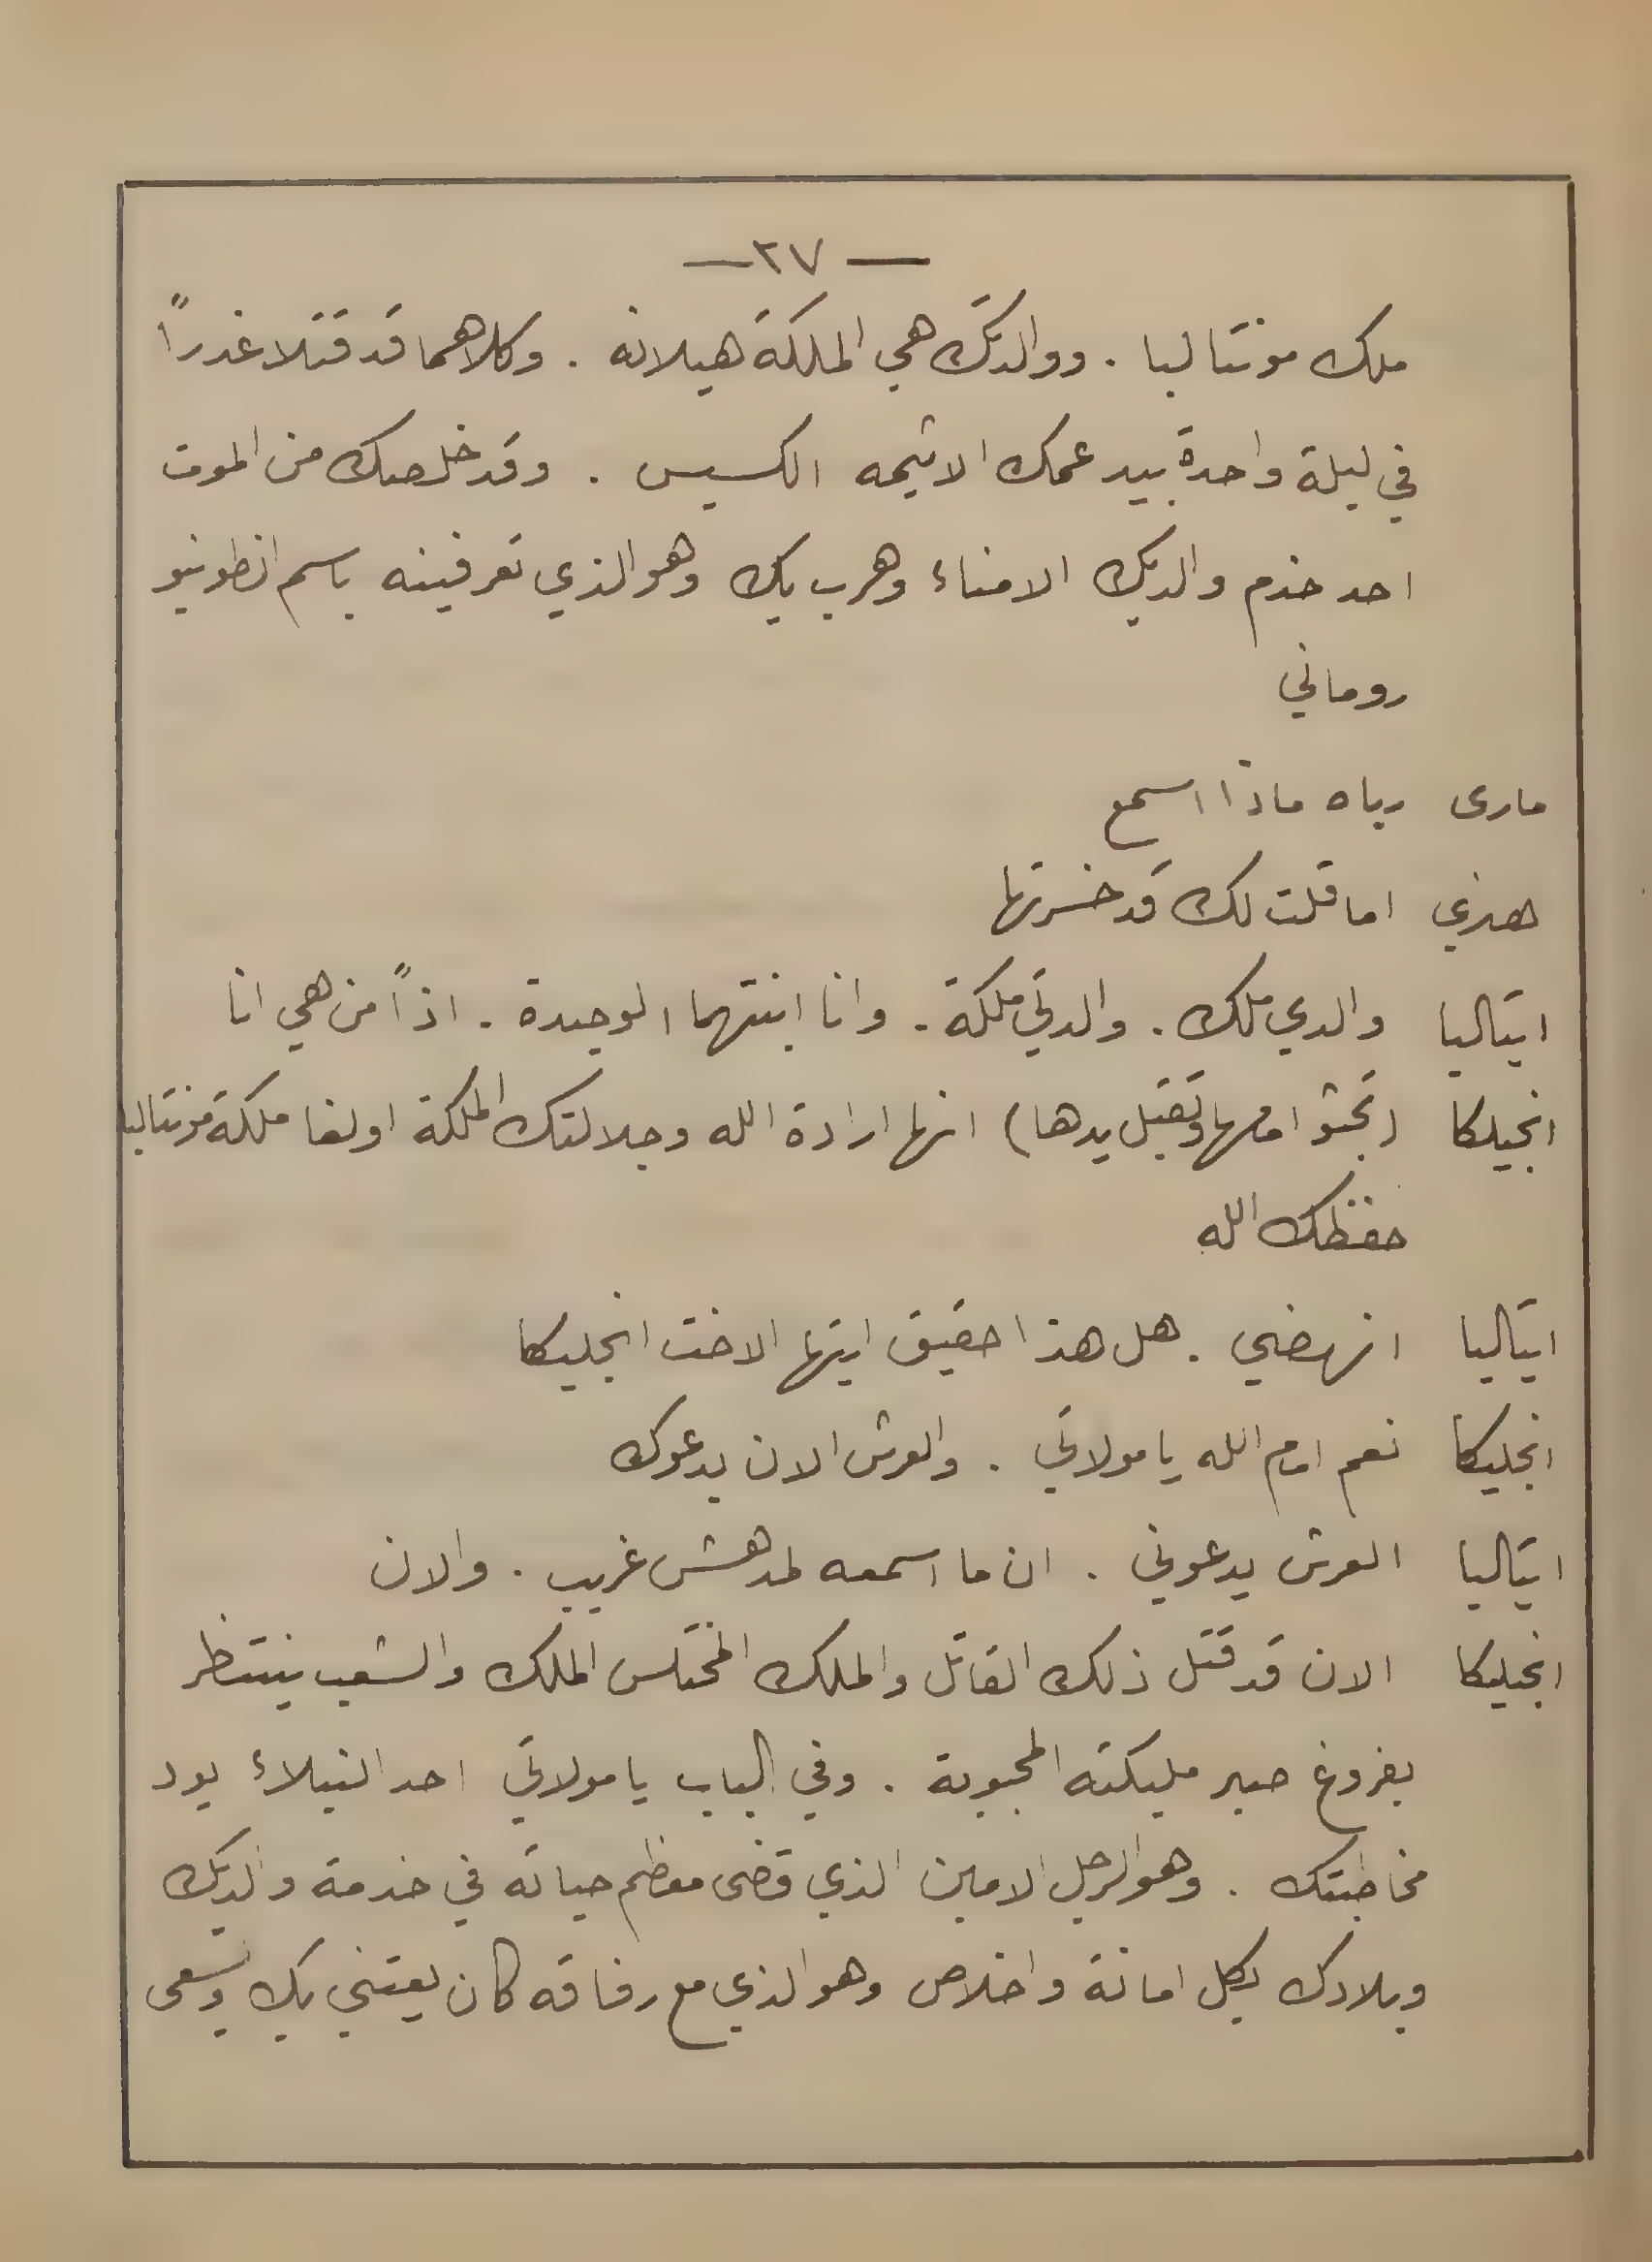 — ٢٧ —
ملك مونتاليا . ووالدتك هي الملكة هيلانه . وكلاهما قد قتلا غدراً
في ليلة واحدة بيد عمك الاثيمه الكسيس . وقد خلصك من الموت
احد خدم والديك الامناء وهرب بك وهو الذي تعرفينه باسم انطونيو
روماني
مارى رباه ماذا اسمع
هنري اما قلت لك قد خسرتها
ايتاليا والدي ملك . والدتي ملكة . وانا ابنتهما الوحيدة . اذاً من هي انا
انجيلكا (تجثو امامها وتقبل يدها) انها ارادة الله وجلالتك الملكة اولغا ملكة مونتاليا
حفظك الله
ايتاليا انهضي . هل هذا حقيق ايتها الاخت انجليكا
انجليكا نعم امام الله يا مولاتي . والعرش الان يدعوك
ايتاليا العرش يدعوني . ان ما اسمعه لمدهش غريب . والان
انجليكا الان قد قتل ذلك القاتل والملك المختلس الملك والشعب ينتظر
بفروغ صبر مليكته المحبوبة . وفي الباب يا مولاتي احد النبلاء يود
مخاطبتك . وهو الرجل الامين الذي قضى معظم حياته في خدمة والديك
وبلادك بكل امانة واخلاص وهو الذي مع رفاقه كان يعتني بك ويسعى